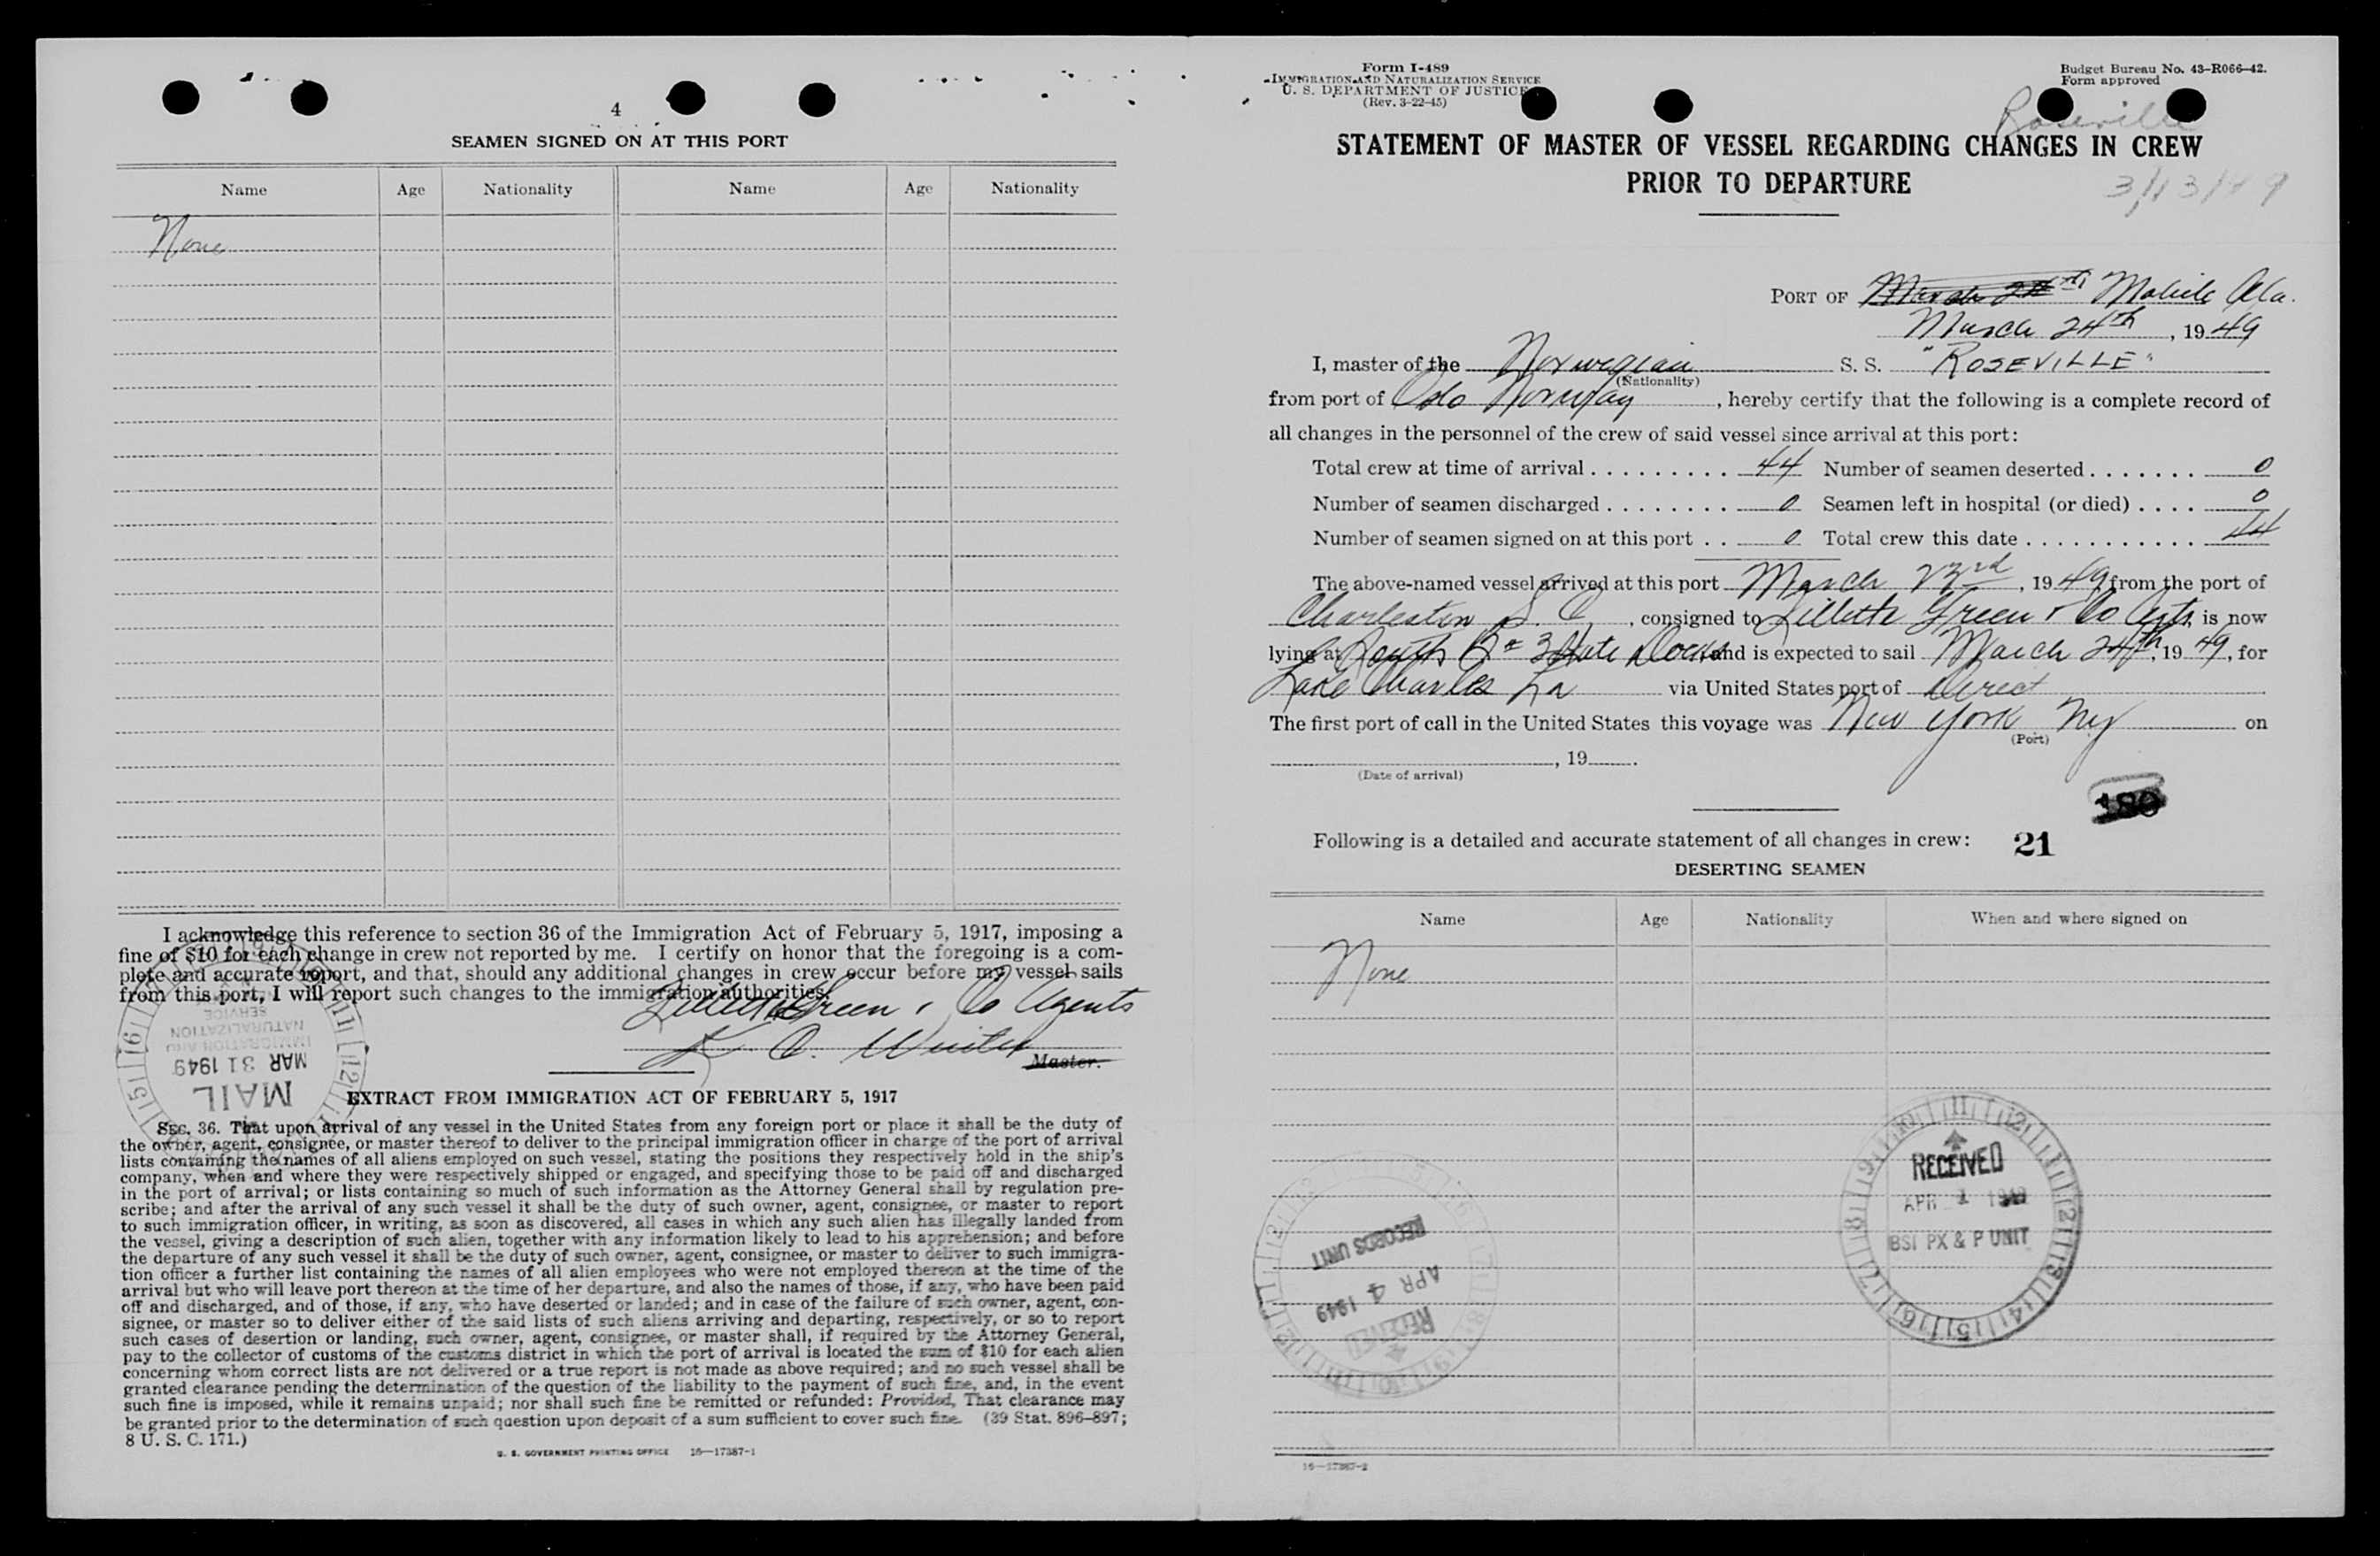 4
SEAMEN SIGNED ON AT THIS PORT
Name Age Nationality Name Age Nationality
None
I acknowledge this reference to section 36 of the Immigration Act of February 5, 1917, imposing a
fine of $10 for each change in crew not reported by me. I certify on honor that the foregoing is a com-
plete and accurate report, and that, should any additional changes in crew occur before my vessel sails
from this port, I will report such changes to the immigration authorities.
Green & Co Agents
K. C.
Master.
IMMIGRATION AND
NATURALIZATION
SERVICE
MAR 31 1949
MAIL
EXTRACT FROM IMMIGRATION ACT OF FEBRUARY 5, 1917
SEC. 36. That upon arrival of any vessel in the United States from any foreign port or place it shall be the duty of
the owner, agent, consignee, or master thereof to deliver to the principal immigration officer in charge of the port of arrival
lists containing the names of all aliens employed on such vessel, stating the positions they respectively hold in the ship's
company, when and where they were respectively shipped or engaged, and specifying those to be paid off and discharged
in the port of arrival; or lists containing so much of such information as the Attorney General shall by regulation pre-
scribe; and after the arrival of any such vessel it shall be the duty of such owner, agent, consignee, or master to report
to such immigration officer, in writing, as soon as discovered, all cases in which any such alien has illegally landed from
the vessel, giving a description of such alien, together with any information likely to lead to his apprehension; and before
the departure of any such vessel it shall be the duty of such owner, agent, consignee, or master to deliver to such immigra-
tion officer a further list containing the names of all alien employees who were not employed thereon at the time of the
arrival but who will leave port thereon at the time of her departure, and also the names of those, if any, who have been paid
off and discharged, and of those, if any, who have deserted or landed; and in case of the failure of such owner, agent, con-
signee, or master so to deliver either of the said lists of such aliens arriving and departing, respectively, or so to report
such cases of desertion or landing, such owner, agent, consignee, or master shall, if required by the Attorney General,
pay to the collector of customs of the customs district in which the port of arrival is located the sum of $10 for each alien
concerning whom correct lists are not delivered or a true report is not made as above required; and no such vessel shall be
granted clearance pending the determination of the question of the liability to the payment of such fine, and, in the event
such fine is imposed, while it remains unpaid; nor shall such fine be remitted or refunded: Provided, That clearance may
be granted prior to the determination of such question upon deposit of a sum sufficient to cover such fine. (39 Stat. 896–897;
8 U. S. C. 171.)
U. S. GOVERNMENT PRINTING OFFICE 16—17387-1
Form I-489
IMMIGRATION AND NATURALIZATION SERVICE
U. S. DEPARTMENT OF JUSTICE
(Rev. 3-22-45)
Budget Bureau No. 43-R066-42.
Form approved
Roseville
STATEMENT OF MASTER OF VESSEL REGARDING CHANGES IN CREW
PRIOR TO DEPARTURE
3/13/49
PORT OF Mobile Ala.
March 24th, 1949
I, master of the Norwegian S. S. "ROSEVILLE"
(Nationality)
from port of Oslo Norway, hereby certify that the following is a complete record of
all changes in the personnel of the crew of said vessel since arrival at this port:
Total crew at time of arrival . . . . . . . . . 44 Number of seamen deserted . . . . . . . 0
Number of seamen discharged . . . . . . . . 0 Seamen left in hospital (or died) . . . . 0
Number of seamen signed on at this port . . 0 Total crew this date . . . . . . . . . . . . 44
The above-named vessel arrived at this port March 23rd, 1949 from the port of
Charleston S. C., consigned to Green & Co Agts, is now
lying at South Pr 3 State Docks and is expected to sail March 24th, 1949, for
Lake Charles La via United States port of Direct
The first port of call in the United States this voyage was New York Ny on
(Port)
, 19 .
(Date of arrival)
180
Following is a detailed and accurate statement of all changes in crew: 21
DESERTING SEAMEN
Name Age Nationality When and where signed on
None
RECEIVED
APR 1949
BSI PX & P UNIT
RECORDS UNIT
APR 4 1949
RECEIVED
16—17387-2